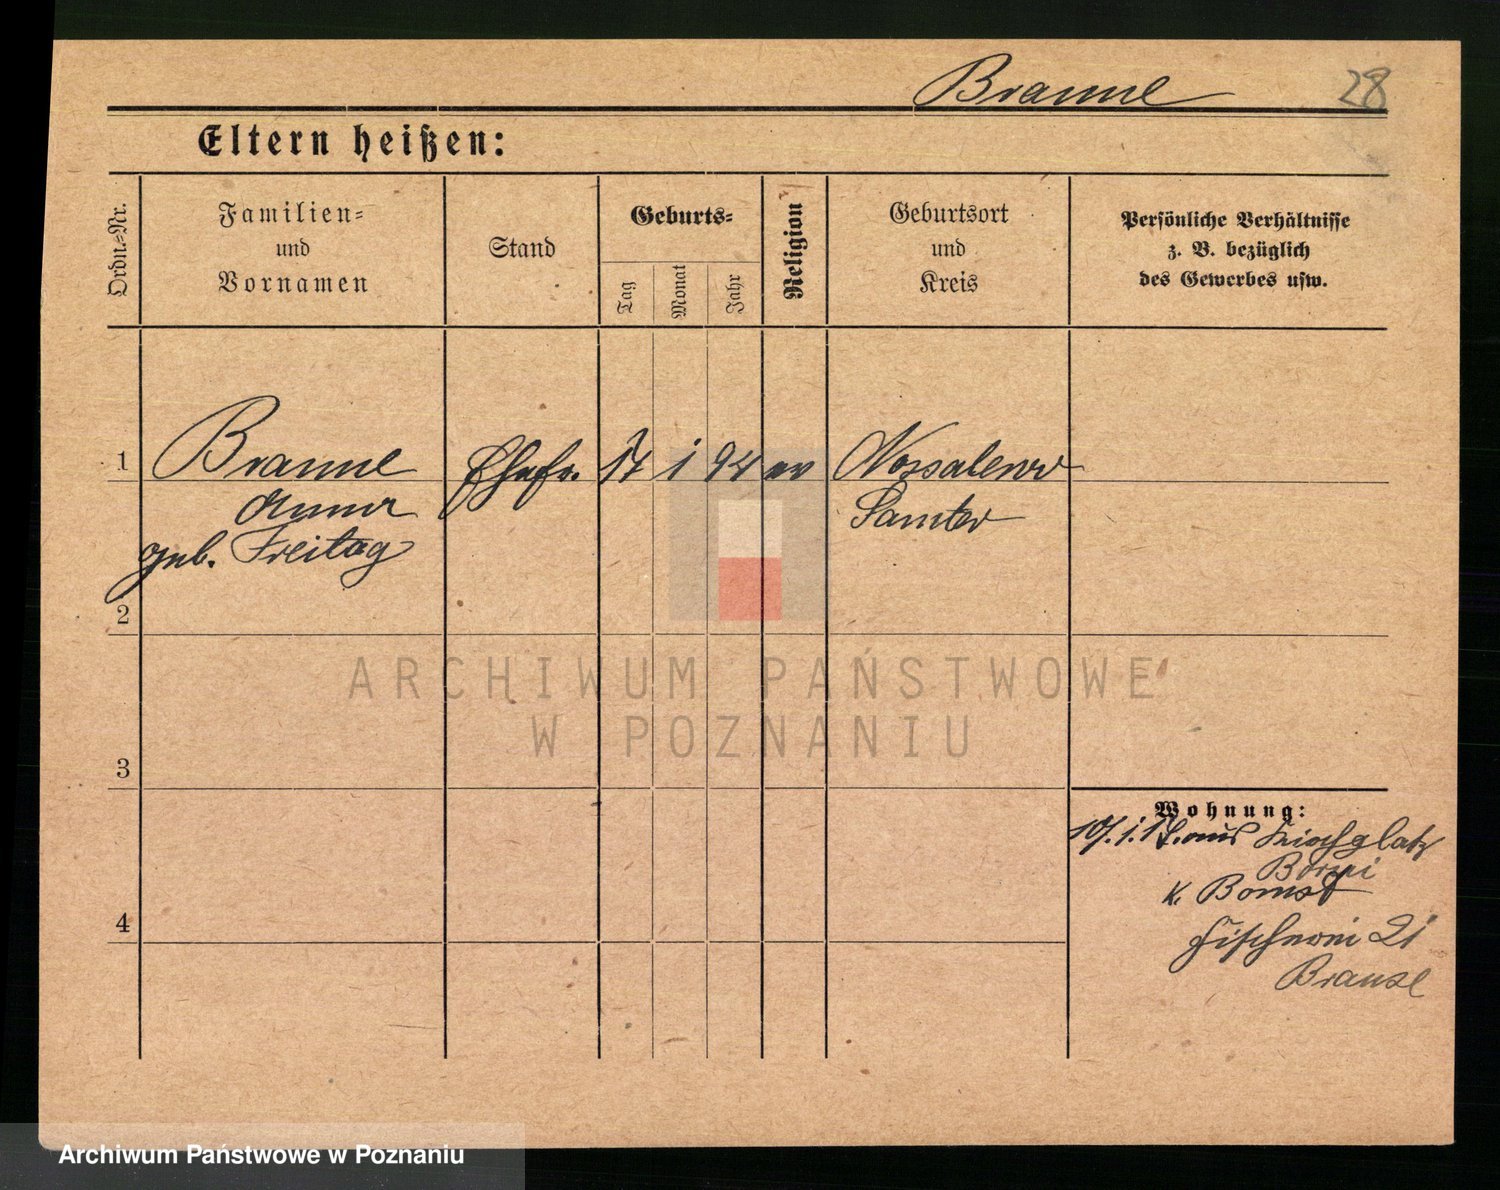 Braune 28
Eltern heißen:
Ordn.=Nr.
Familien=
und
Vornamen
Stand
Geburts=
Tag
Monat
Jahr
Religion
Geburtsort
und
Kreis
Persönliche Verhältnisse
z. B. bezüglich
des Gewerbes usw.
1 Braune Ehefr. 17 1 94 ev
Anna Samter
geb. Freitag
2
3
4
Wohnung:
aus Kirchplatz
K. Bomst
Fischerei 21
Brause
ARCHIWUM PAŃSTWOWE
W POZNANIU
Archiwum Państwowe w Poznaniu